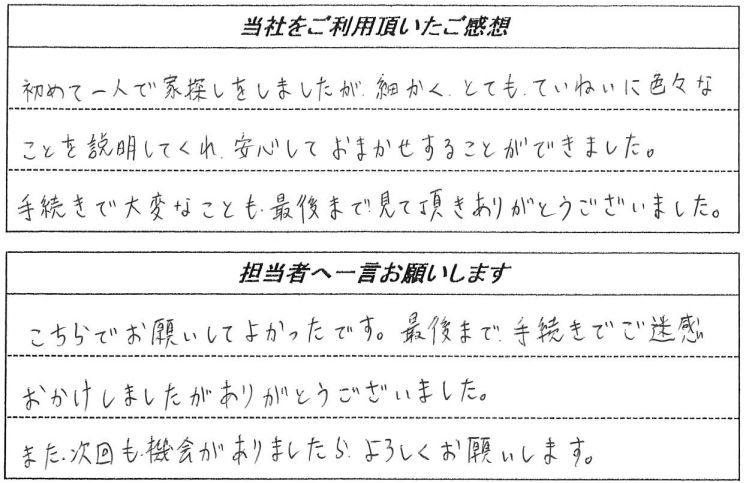 当社をご利用頂いたご感想
初めて一人で家探しをしましたが、細かく、とても、ていねいに色々な
ことを説明してくれ、安心しておまかせすることができました。
手続きで大変なことも、最後まで見て頂きありがとうございました。
担当者へ一言お願いします
こちらでお願いしてよかったです。最後まで、手続きでご迷感
おかけしましたがありがとうございました。
また、次回も、機会がありましたら、よろしくお願いします。